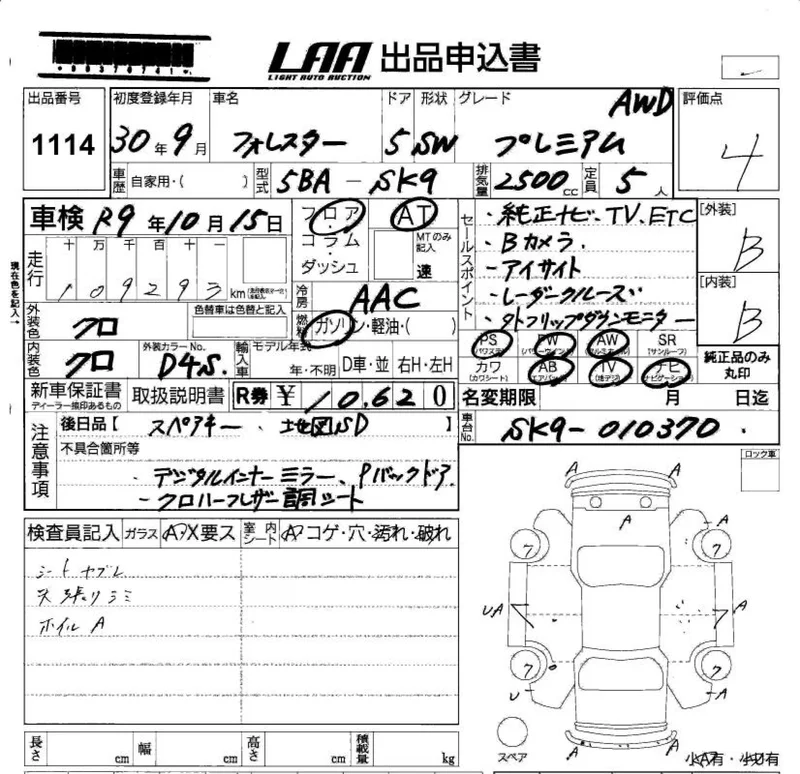 *00370741*
LAA 出品申込書
LIGHT AUTO AUCTION
出品番号 初度登録年月 車名 ドア 形状 グレード AWD 評価点
1114 30年9月 フォレスター 5 SW プレミアム 4
車歴 自家用・( ) 型式 5BA-SK9 排気量 2500cc 定員 5人
車検 R9年10月15日 フロア AT
コラム・ MTのみ記入
ダッシュ 速
現在色を記入→
走行 十 万 千 百 十 一
109293 km
セールスポイント
・純正ナビ、TV、ETC
・Bカメラ
・アイサイト
・レーダークルーズ
・タトフリップダウンモニター
[外装]
B
[内装]
B
冷房 AAC
外装色 クロ 色替車は色替と記入 燃料 ガソリン・軽油・( )
内装色 クロ 外装カラーNo. D4S. 輸入車 モデル年式 年・不明 D車・並 右H・左H
PS (パワステ) PW (パワーウィンド) AW (アルミホイール) SR (サンルーフ)
カワ (カワシート) AB (エアバッグ) TV (地デジ) ナビ (ナビゲーション)
純正品のみ丸印
新車保証書 ディーラー捺印あるもの 取扱説明書 R券 ¥10.620 名変期限 月 日迄
注意事項
後日品【 スペアキー、地図SD 】
車台No. SK9-010370.
不具合箇所等
・デジタルインナーミラー、Pバックドア
・クロハーフレザー調シート
ロック車
検査員記入 ガラス A・X要ス 室内シート A コゲ・穴・汚れ・破れ
シートヤブレ
天張りシミ
ホイルA
A A
A A
7 7
UA A
7 7
U A
A A
スペア
長さ cm 幅 cm 高さ cm 積載量 kg